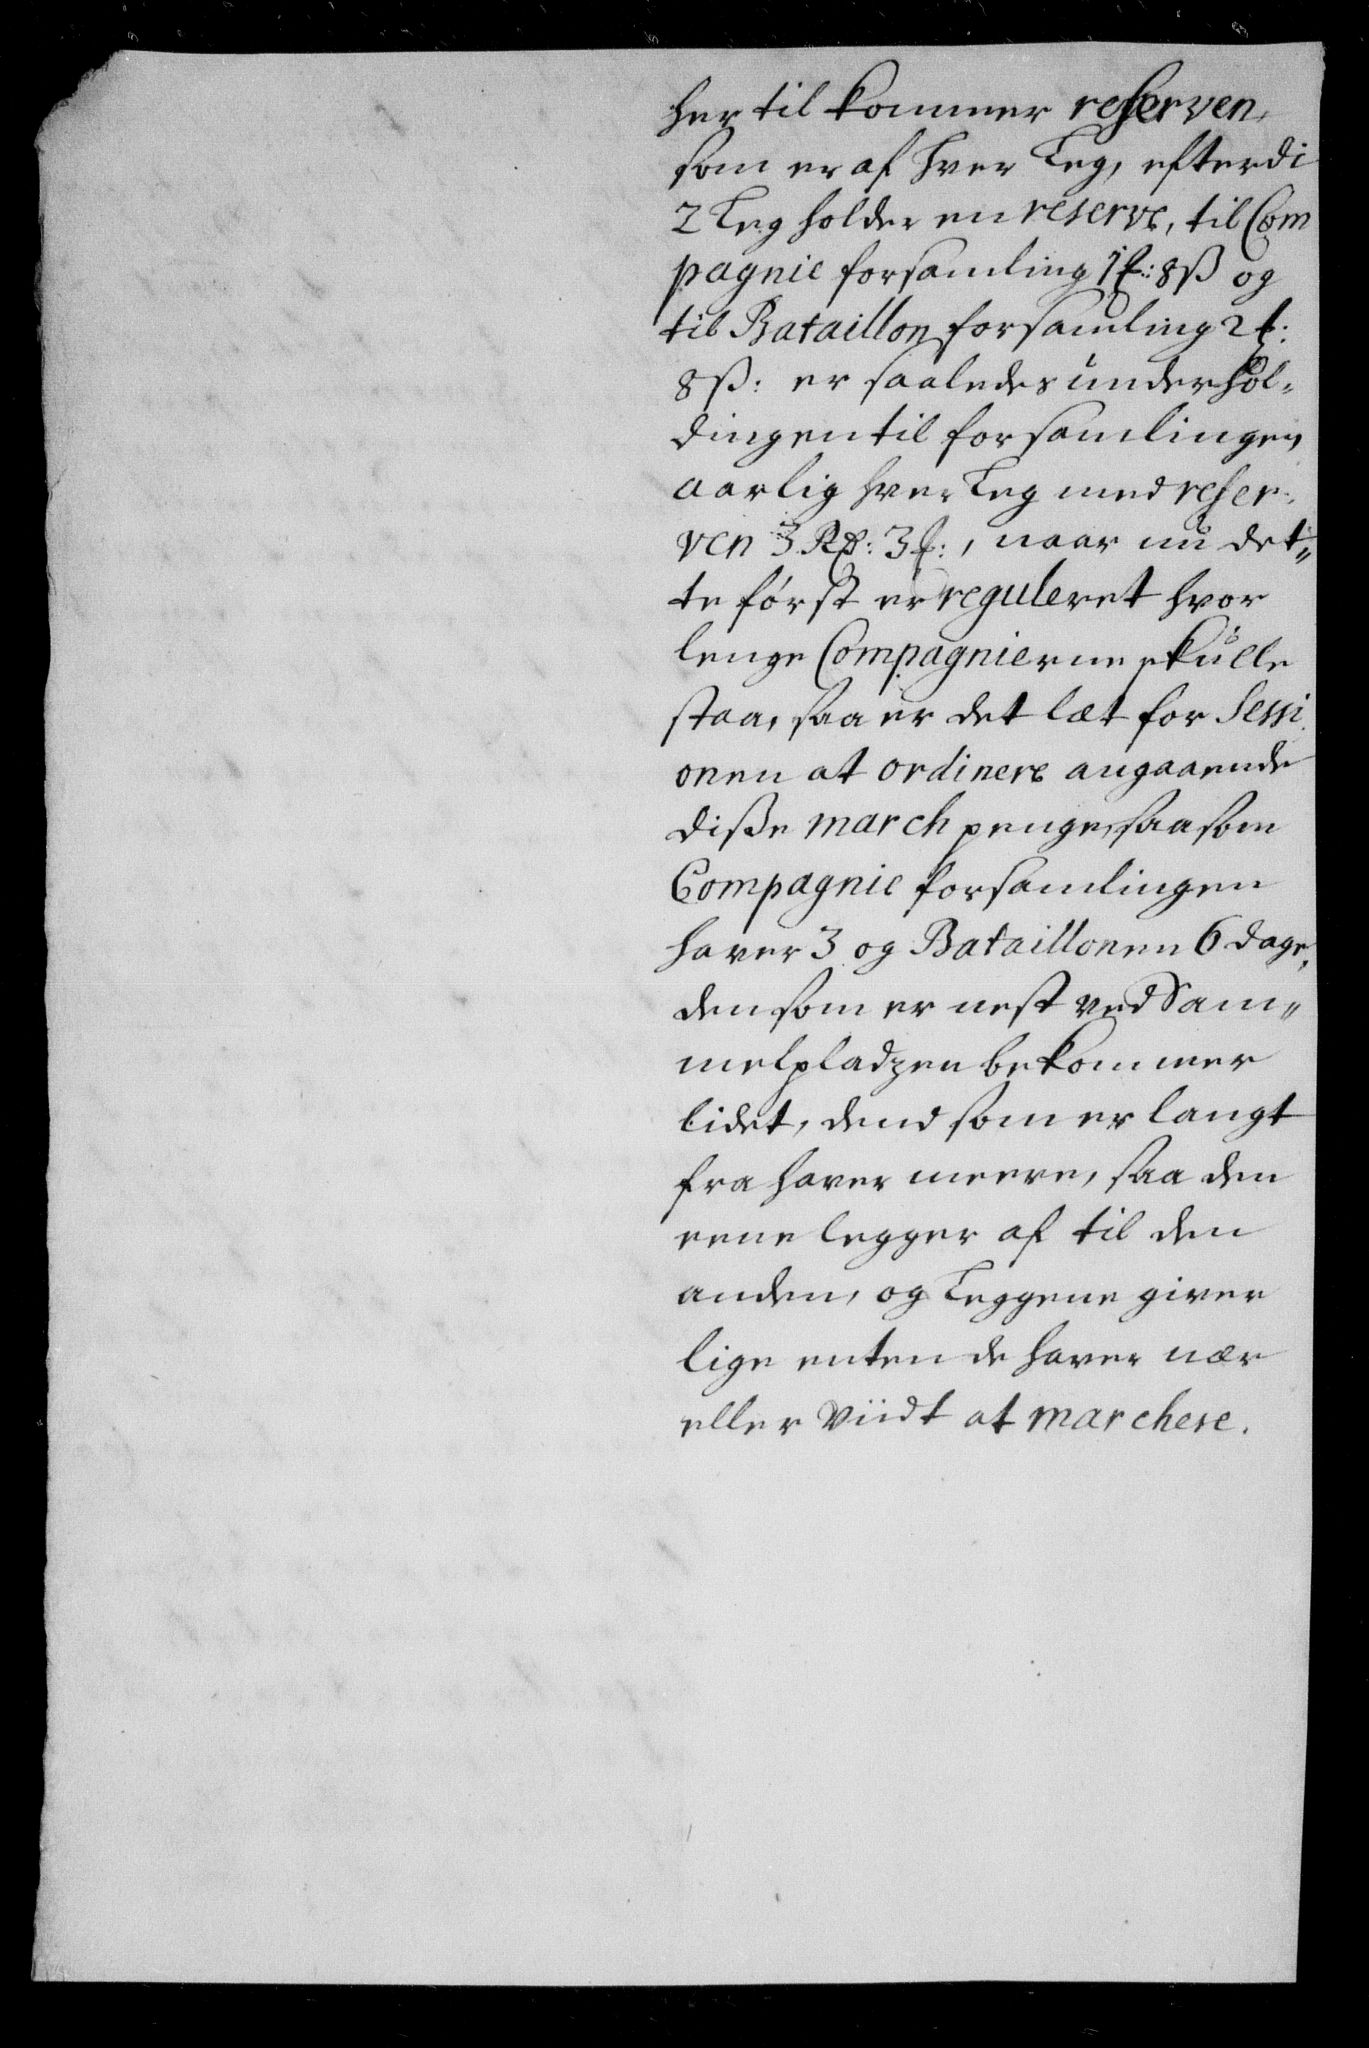 her til kommer reserven,
som er af hver Leg, efterdi
2 Leg holder en reserve, til Com
pagnie forsamling 1 ℔: 8 ß og
til Bataillon forsamling 2 ℔:
8 ß: er saaledes underhol-
dingen til forsamlingen
aarlig hver Leg med reser-
ven 3 Rd: 3 ℔:, naar nu det„
te først er reguleret hvor
lenge Compagnierne skulle
staa, saa er det læt for Sessi
onen at ordinere angaaende
disse march penge, saasom
Compagnie forsamlingen
haver 3 og Bataillonen 6 dage,
den som er nest ved Sam„
melpladzen bekommer
lidet, dend som er langt
fra haver meere, saa den
eene legger af til den
anden, og Leggene giver
lige enten de haver nær
eller viidt at marchere.